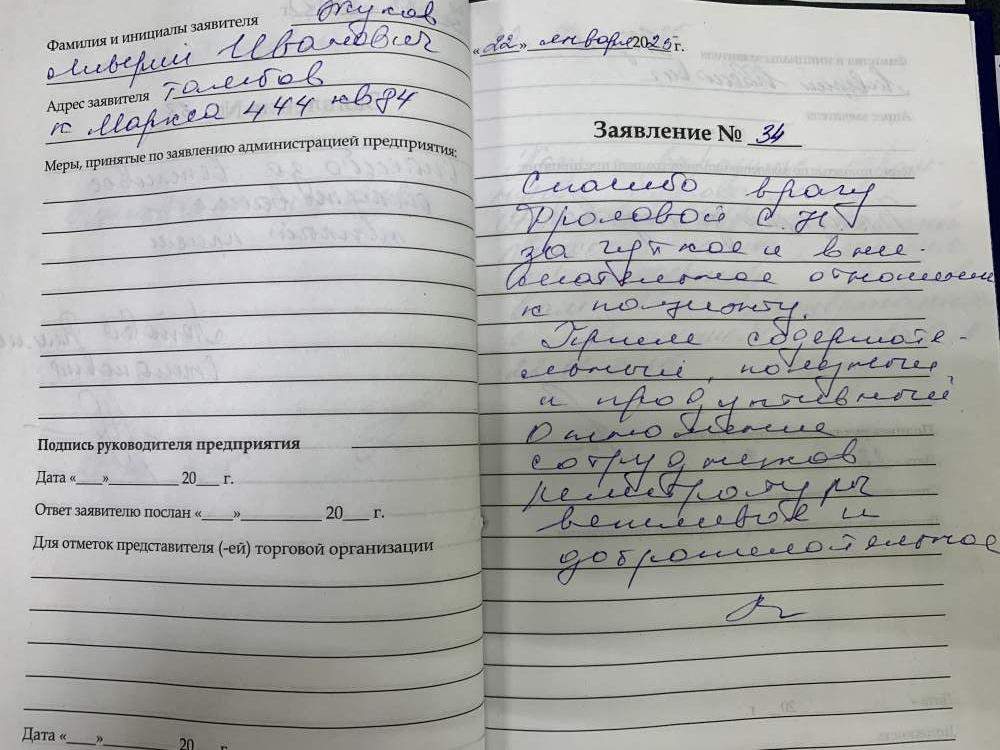 Фамилия и инициалы заявителя Жуков
Ливерий Иванович
Адрес заявителя Тамбов
К Маркса 444 кв 84
Меры, принятые по заявлению администрацией предприятия:
Подпись руководителя предприятия
Дата «___»__________ 20___ г.
Ответ заявителю послан «____»____________ 20___ г.
Для отметок представителя (-ей) торговой организации
Дата «____»____________ 20___ г.
«22» января 2025 г.
Заявление № 34
Спасибо врачу
Фроловой С.Н
за чуткое и вни-
мательное отношение
к пациенту.
Прием содержате-
льный, полезный
и продуктивный
Отношение
сотрудников
регистратуры
вежливое и
доброжелательное